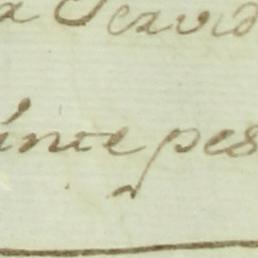 a Seavid
inte pes